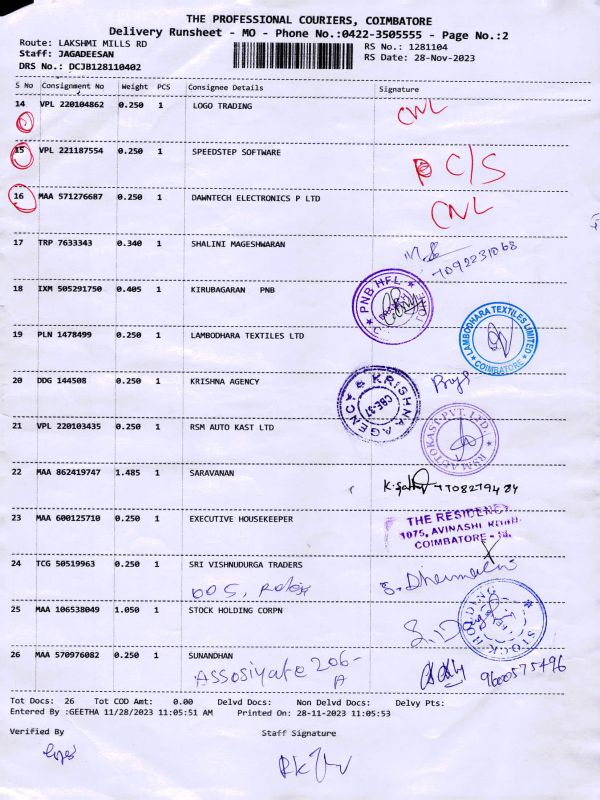 THE PROFESSIONAL COURIERS, COIMBATORE
Delivery Runsheet - MO - Phone No.:0422-3505555 - Page No.:2
Route: LAKSHMI MILLS RD
RS No.: 1281104
Staff: JAGADEESAN
RS Date: 28-Nov-2023
DRS No.: DCJB128110402
S No Consignment No Weight PCS Consignee Details Signature
14 VPL 220104862 0.250 1 LOGO TRADING CNL
15 VPL 221187554 0.250 1 SPEEDSTEP SOFTWARE C/S
16 MAA 571276687 0.250 1 DAWNTECH ELECTRONICS P LTD CNL
17 TRP 7633343 0.340 1 SHALINI MAGESHWARAN
7092231068
18 IXM 505291750 0.405 1 KIRUBAGARAN PNB
PNB HFL
19 PLN 1478499 0.250 1 LAMBODHARA TEXTILES LTD
LAMBODHARA TEXTILES LIMITED
COIMBATORE
20 DDG 144508 0.250 1 KRISHNA AGENCY
KRISHNA AGENCY &
CBE-37
21 VPL 220103435 0.250 1 RSM AUTO KAST LTD
RSM AUTOKAST PVT. LTD.
22 MAA 862419747 1.485 1 SARAVANAN
7708279484
23 MAA 600125710 0.250 1 EXECUTIVE HOUSEKEEPER
THE RESIDENCY
1075, AVINASHI ROAD,
COIMBATORE -
24 TCG 50519963 0.250 1 SRI VISHNUDURGA TRADERS
25 MAA 106538049 1.050 1 STOCK HOLDING CORPN
STOCK HOLDING
26 MAA 570976082 0.250 1 SUNANDHAN
Assosiyate 206-A
9600575496
Tot Docs: 26 Tot COD Amt: 0.00 Delvd Docs: Non Delvd Docs: Delvy Pts:
Entered By :GEETHA 11/28/2023 11:05:51 AM Printed On: 28-11-2023 11:05:53
Verified By Staff Signature